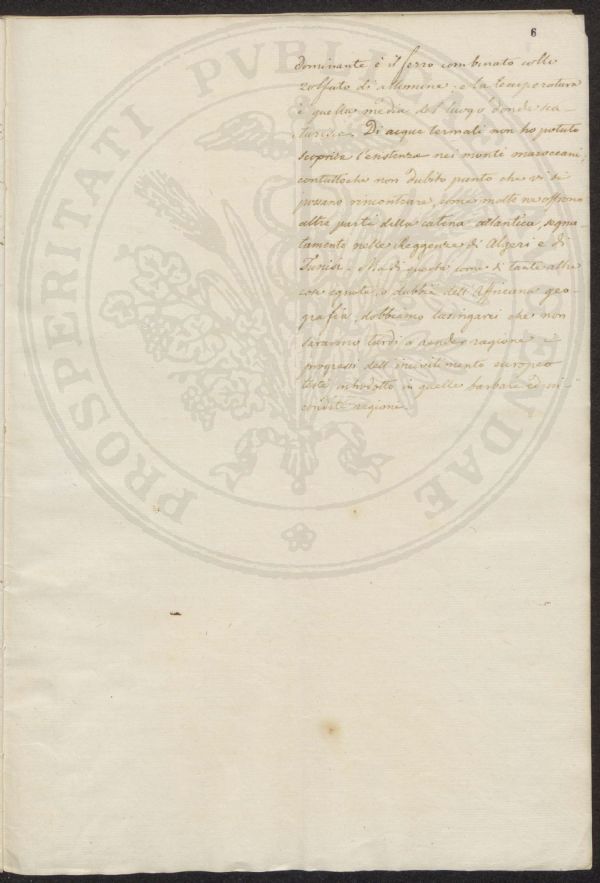 6
dominante è il ferro combinato collo
zolfato di allumine, e la temperatura
è quella media del luogo donde sca-
turisce. Di acque termali non ho potuto
scoprire l'esistenza nei monti maroccani,
contuttoche non dubito punto che vi si
possano rincontrare, come molte ne offrono
altre parti della catena atlantica, segna-
tamente nelle Reggenze di Algeri e di
Tunisi. Ma di questa come di tante altre
cose ignote, o dubbie dell'Affricana geo-
grafia, dobbiamo lusingarci che non
saranno tardi a render ragione i
progressi dell'incivilimento europeo
testè introdotto in quelle barbare ed
regioni.
PROSPERITATI PVBLICAE AVGENDAE